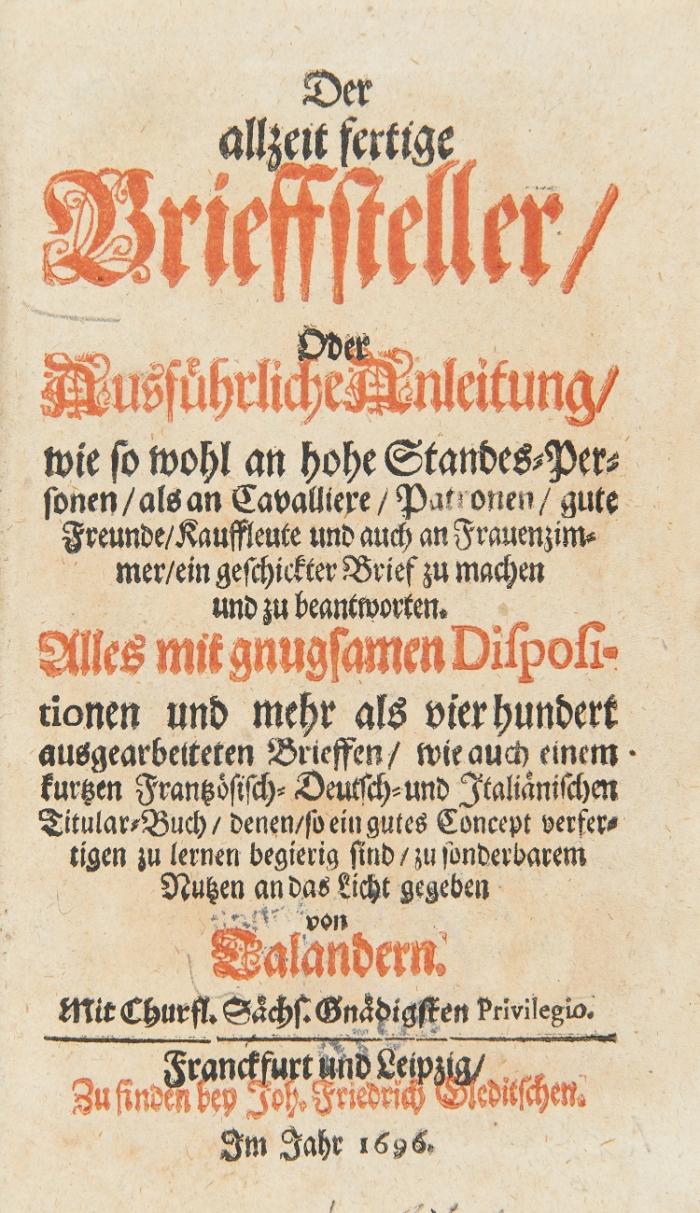 Der
allzeit fertige
Brieffsteller/
Oder
Ausführliche Anleitung/
wie so wohl an hohe Standes-Per-
sonen/ als an Cavalliere/ Patronen/ gute
Freunde/ Kauffleute und auch an Frauenzim-
mer/ ein geschickter Brief zu machen
und zu beantworten.
Alles mit gnugsamen Disposi-
tionen und mehr als vierhundert
ausgearbeiteten Brieffen/ wie auch einem
kurtzen Frantzösisch- Deutsch- und Italiänischen
Titular-Buch/ denen/ so ein gutes Concept verfer-
tigen zu lernen begierig sind/ zu sonderbarem
Nutzen an das Licht gegeben
von
Talandern.
Mit Churfl. Sächs. Gnädigsten Privilegio.
Franckfurt und Leipzig/
Zu finden bey Joh. Friedrich Gleditschen.
Im Jahr 1696.